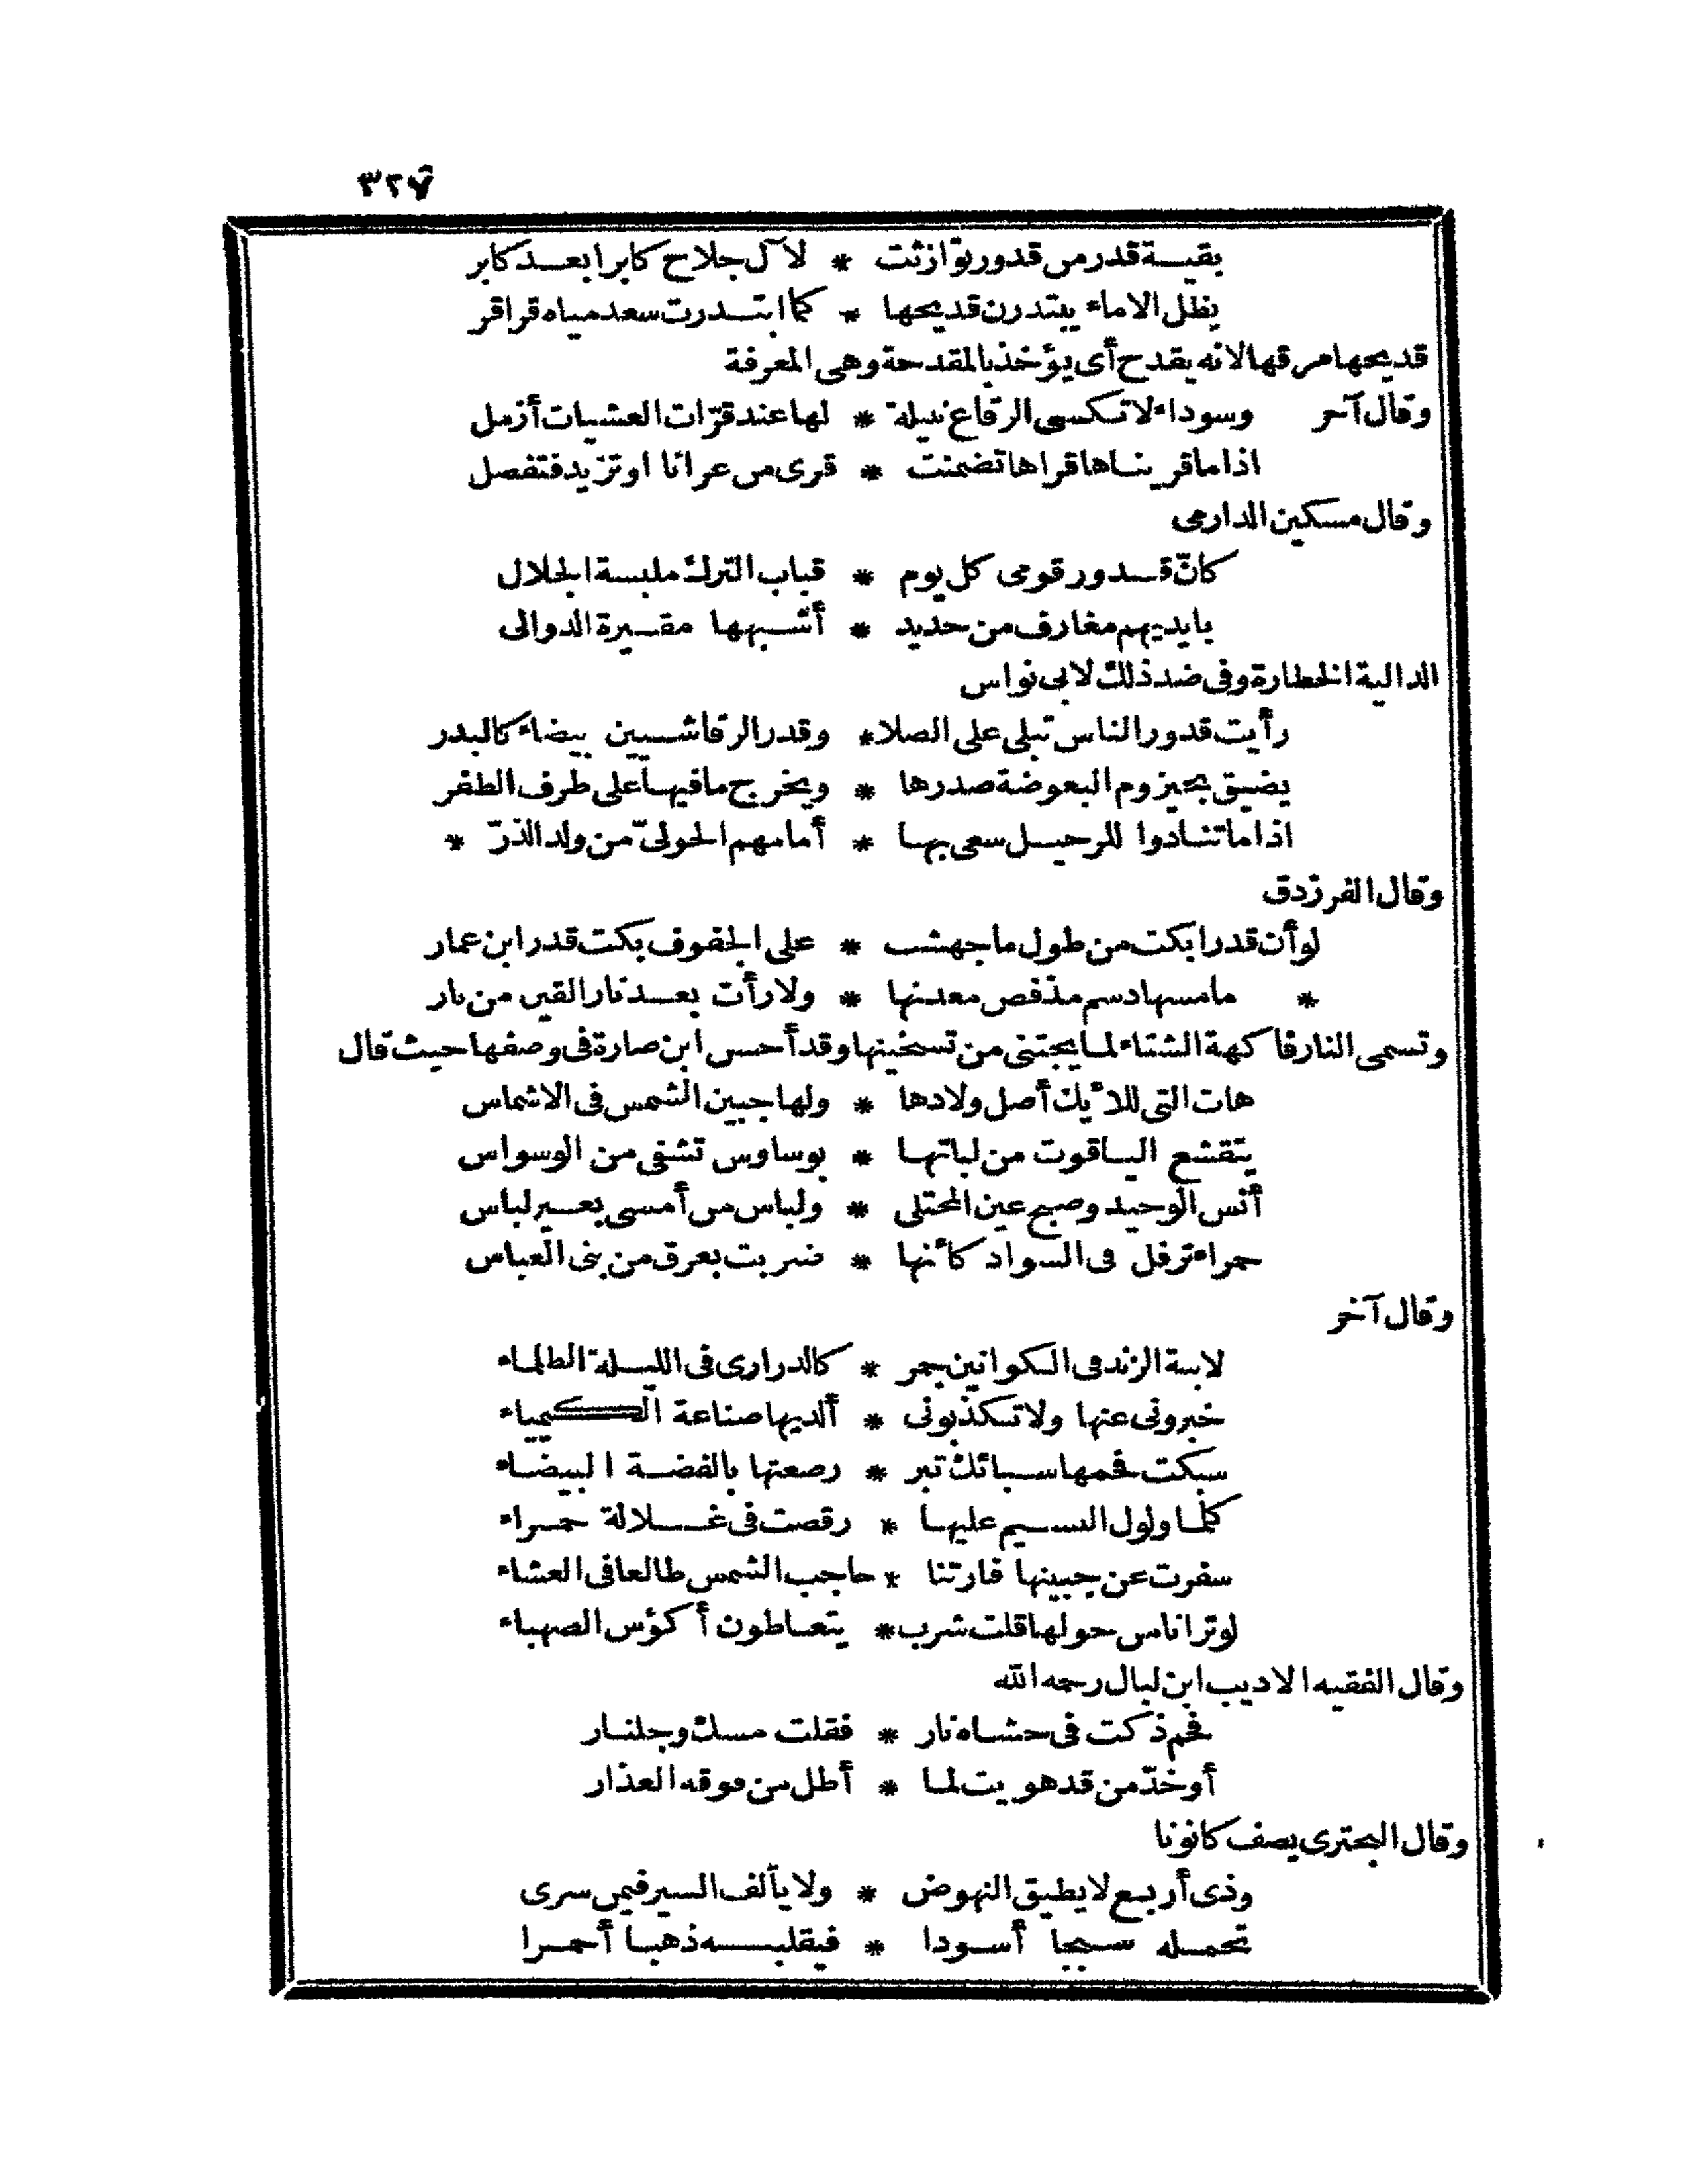 ٣٢٧
بقيسة قدر من قدور توارثت * لآل جلاح كابرا بعد كابر
يظل الاماء يبتدرن قديحها * كما ابتدرت سعد مياه قراقر
قديحها مرقها لانه يقدح أى يؤخذ بالمقدحة وهى المغرفة
وقال آخر وسوداء لا تكسى الرقاع نبيلة * لها عند قرّات العشيات أزمل
اذا ما قريناها قراها تضمنت * قرى من عرانا او تزيد فتفضل
وقال مسكين الدارمى
كانّ قدور قومى كل يوم * قباب الترك ملبسة الجلال
بايديهم مغارف من حديد * أشبهها مقيرة الدوالى
الدالية الخطارة وفى ضد ذلك لابى نواس
رأيت قدور الناس تبلى على الصلا * وقدر الرقاشيين بيضاء كالبدر
يضيق بحيزوم البعوضة صدرها * ويخرج ما فيها على طرف الظفر
اذا ما تنادوا للرحيل سعى بها * أمامهم الحولىّ من ولد الذرّ *
وقال الفرزدق
لو أن قدرا بكت من طول ما جهشت * على الجفوف بكت قدر ابن عمار
* ما مسها دسم مذ فض معدنها * ولا رأت بعد نار القين من نار
وتسمى النار فاكهة الشتاء لما يجتنى من تسخينها وقد أحسن ابن صارة فى وصفها حيث قال
هات التى للأيك أصل ولادها * ولها جبين الشمس فى الاشماس
يتقشع الياقوت من لباتها * بوساوس تشفى من الوسواس
أنس الوحيد وصبح عين المجتلى * ولباس من أمسى بغير لباس
حمراء ترفل فى السواد كأنها * ضربت بعرق من بنى العباس
وقال آخر
لابنة الزند فى الكوانين جمر * كالدرارى فى الليلة الظلماء
خبرونى عنها ولا تكذبونى * ألديها صناعة الكيمياء
سبكت فحمها سبائك تبر * رصعتها بالفضة البيضاء
كلما ولول النسيم عليها * رقصت فى غلالة حمراء
سفرت عن جبينها فارتنا * حاجب الشمس طالعا فى العشاء
لو ترانا من حولها قلت شرب * يتعاطون أكؤس الصهباء
وقال الفقيه الاديب ابن لبال رحمه الله
فحم ذكت فى حشاه نار * فقلت مسك وجلنار
أو خدّ من قد هويت لما * أطل من فوقه العذار
وقال البحترى يصف كانونا
وذى أربع لا يطيق النهوض * ولا يألف السير فيمن سرى
تحمله سبجا أسودا * فيقلبه ذهبا أحمرا